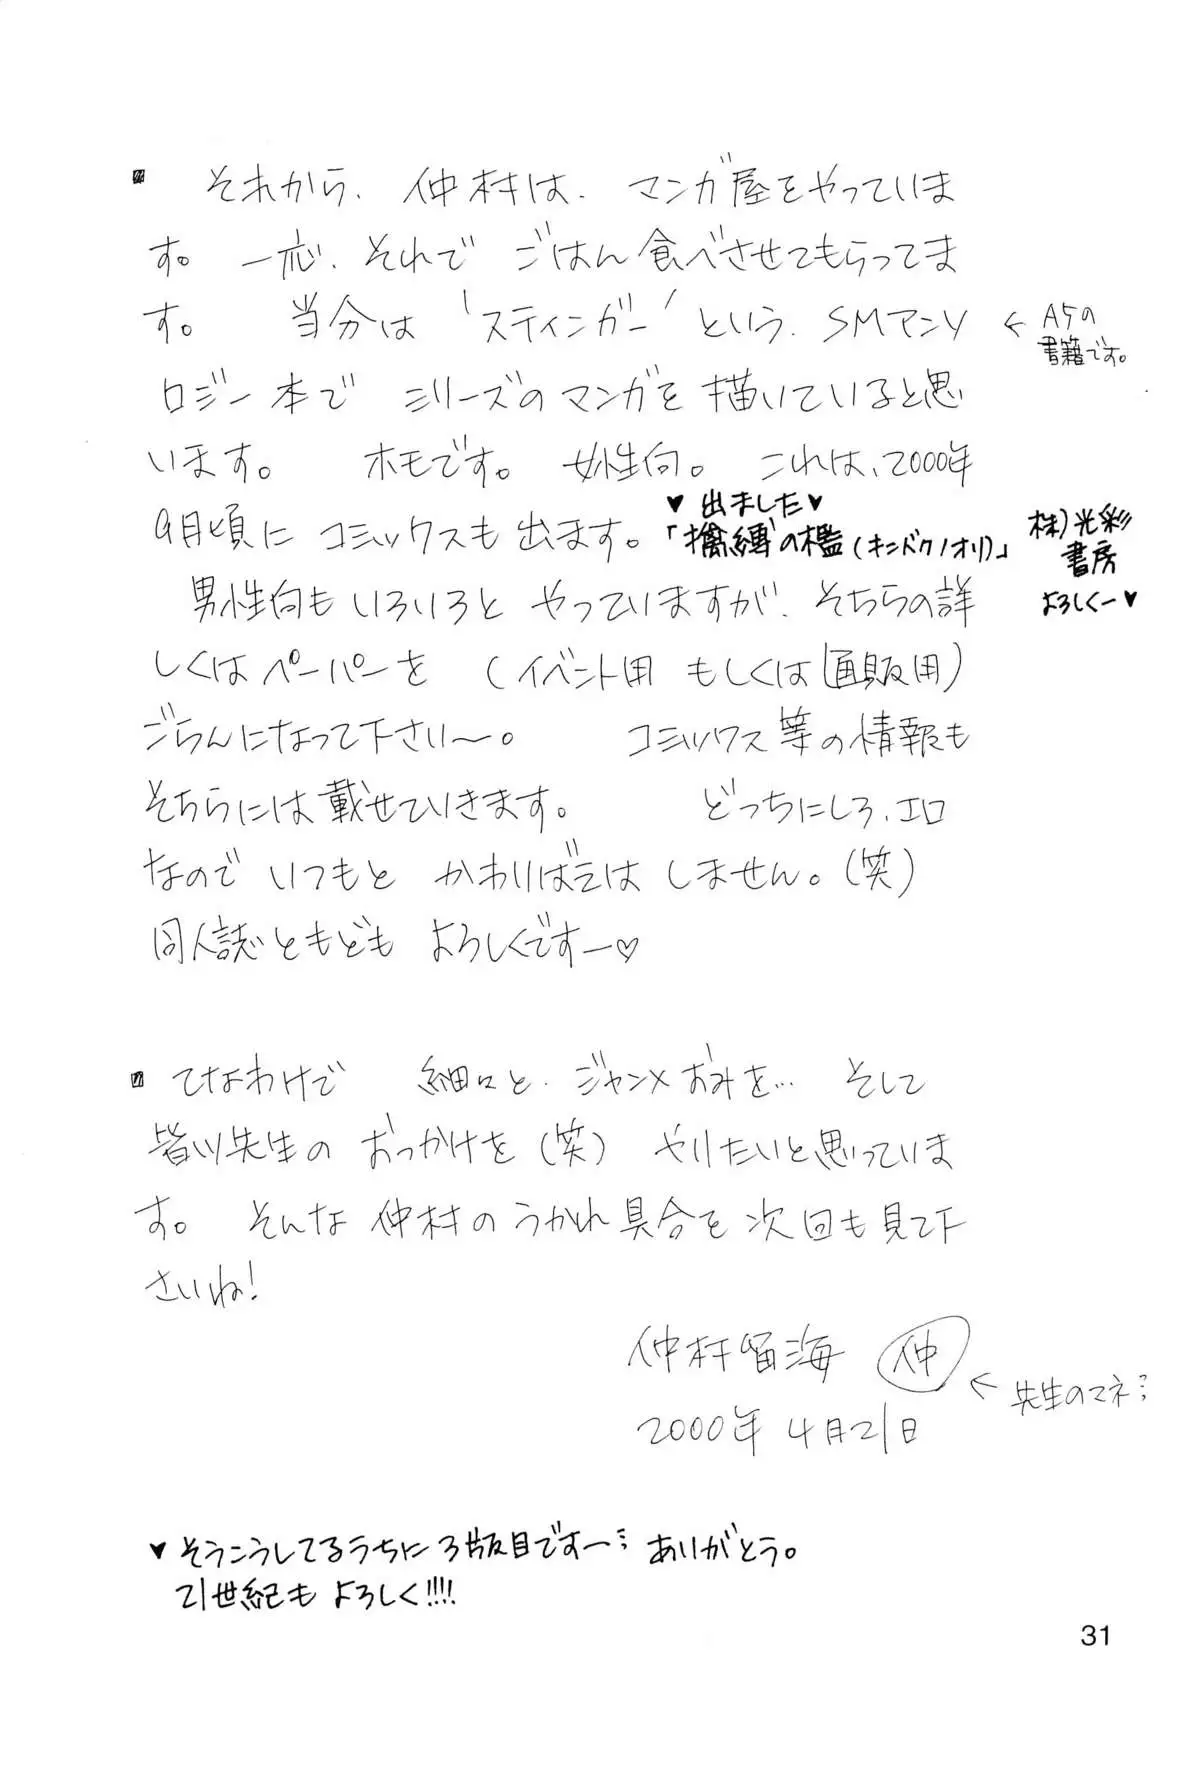 それから、仲村は、マンガ屋をやっていま
す。一応、それで ごはん食べさせてもらってま
す。 当分は 'スティンガー' という、SMアンソ
←A5の
書籍です。
ロジー本で シリーズのマンガを描いていると思
います。 ホモです。 女性向。 これは、2000年
♥出ました♥
9月頃に コミックスも出ます。「擒縛の檻(キンバクノオリ)」
株)光彩
書房
よろしくー♥
男性向もいろいろと やっていますが、そちらの詳
しくはペーパーを (イベント用 もしくは通販用)
ごらんになって下さい〜。 コミックス等の情報も
そちらには載せていきます。 どっちにしろ、エロ
なので いつもと かわりばえは しません。(笑)
同人誌ともども よろしくですー♡
てなわけで 細々と、ジャン×おみを… そして
皆川先生の おっかけを(笑) やりたいと思っていま
す。 そんな 仲村のうかれ具合を次回も見て下
さいね!
仲村留海 仲
←先生のマネ…
2000年 4月21日
♥そうこうしてるうちに3版目ですー… ありがとう。
21世紀も よろしく!!!!
31